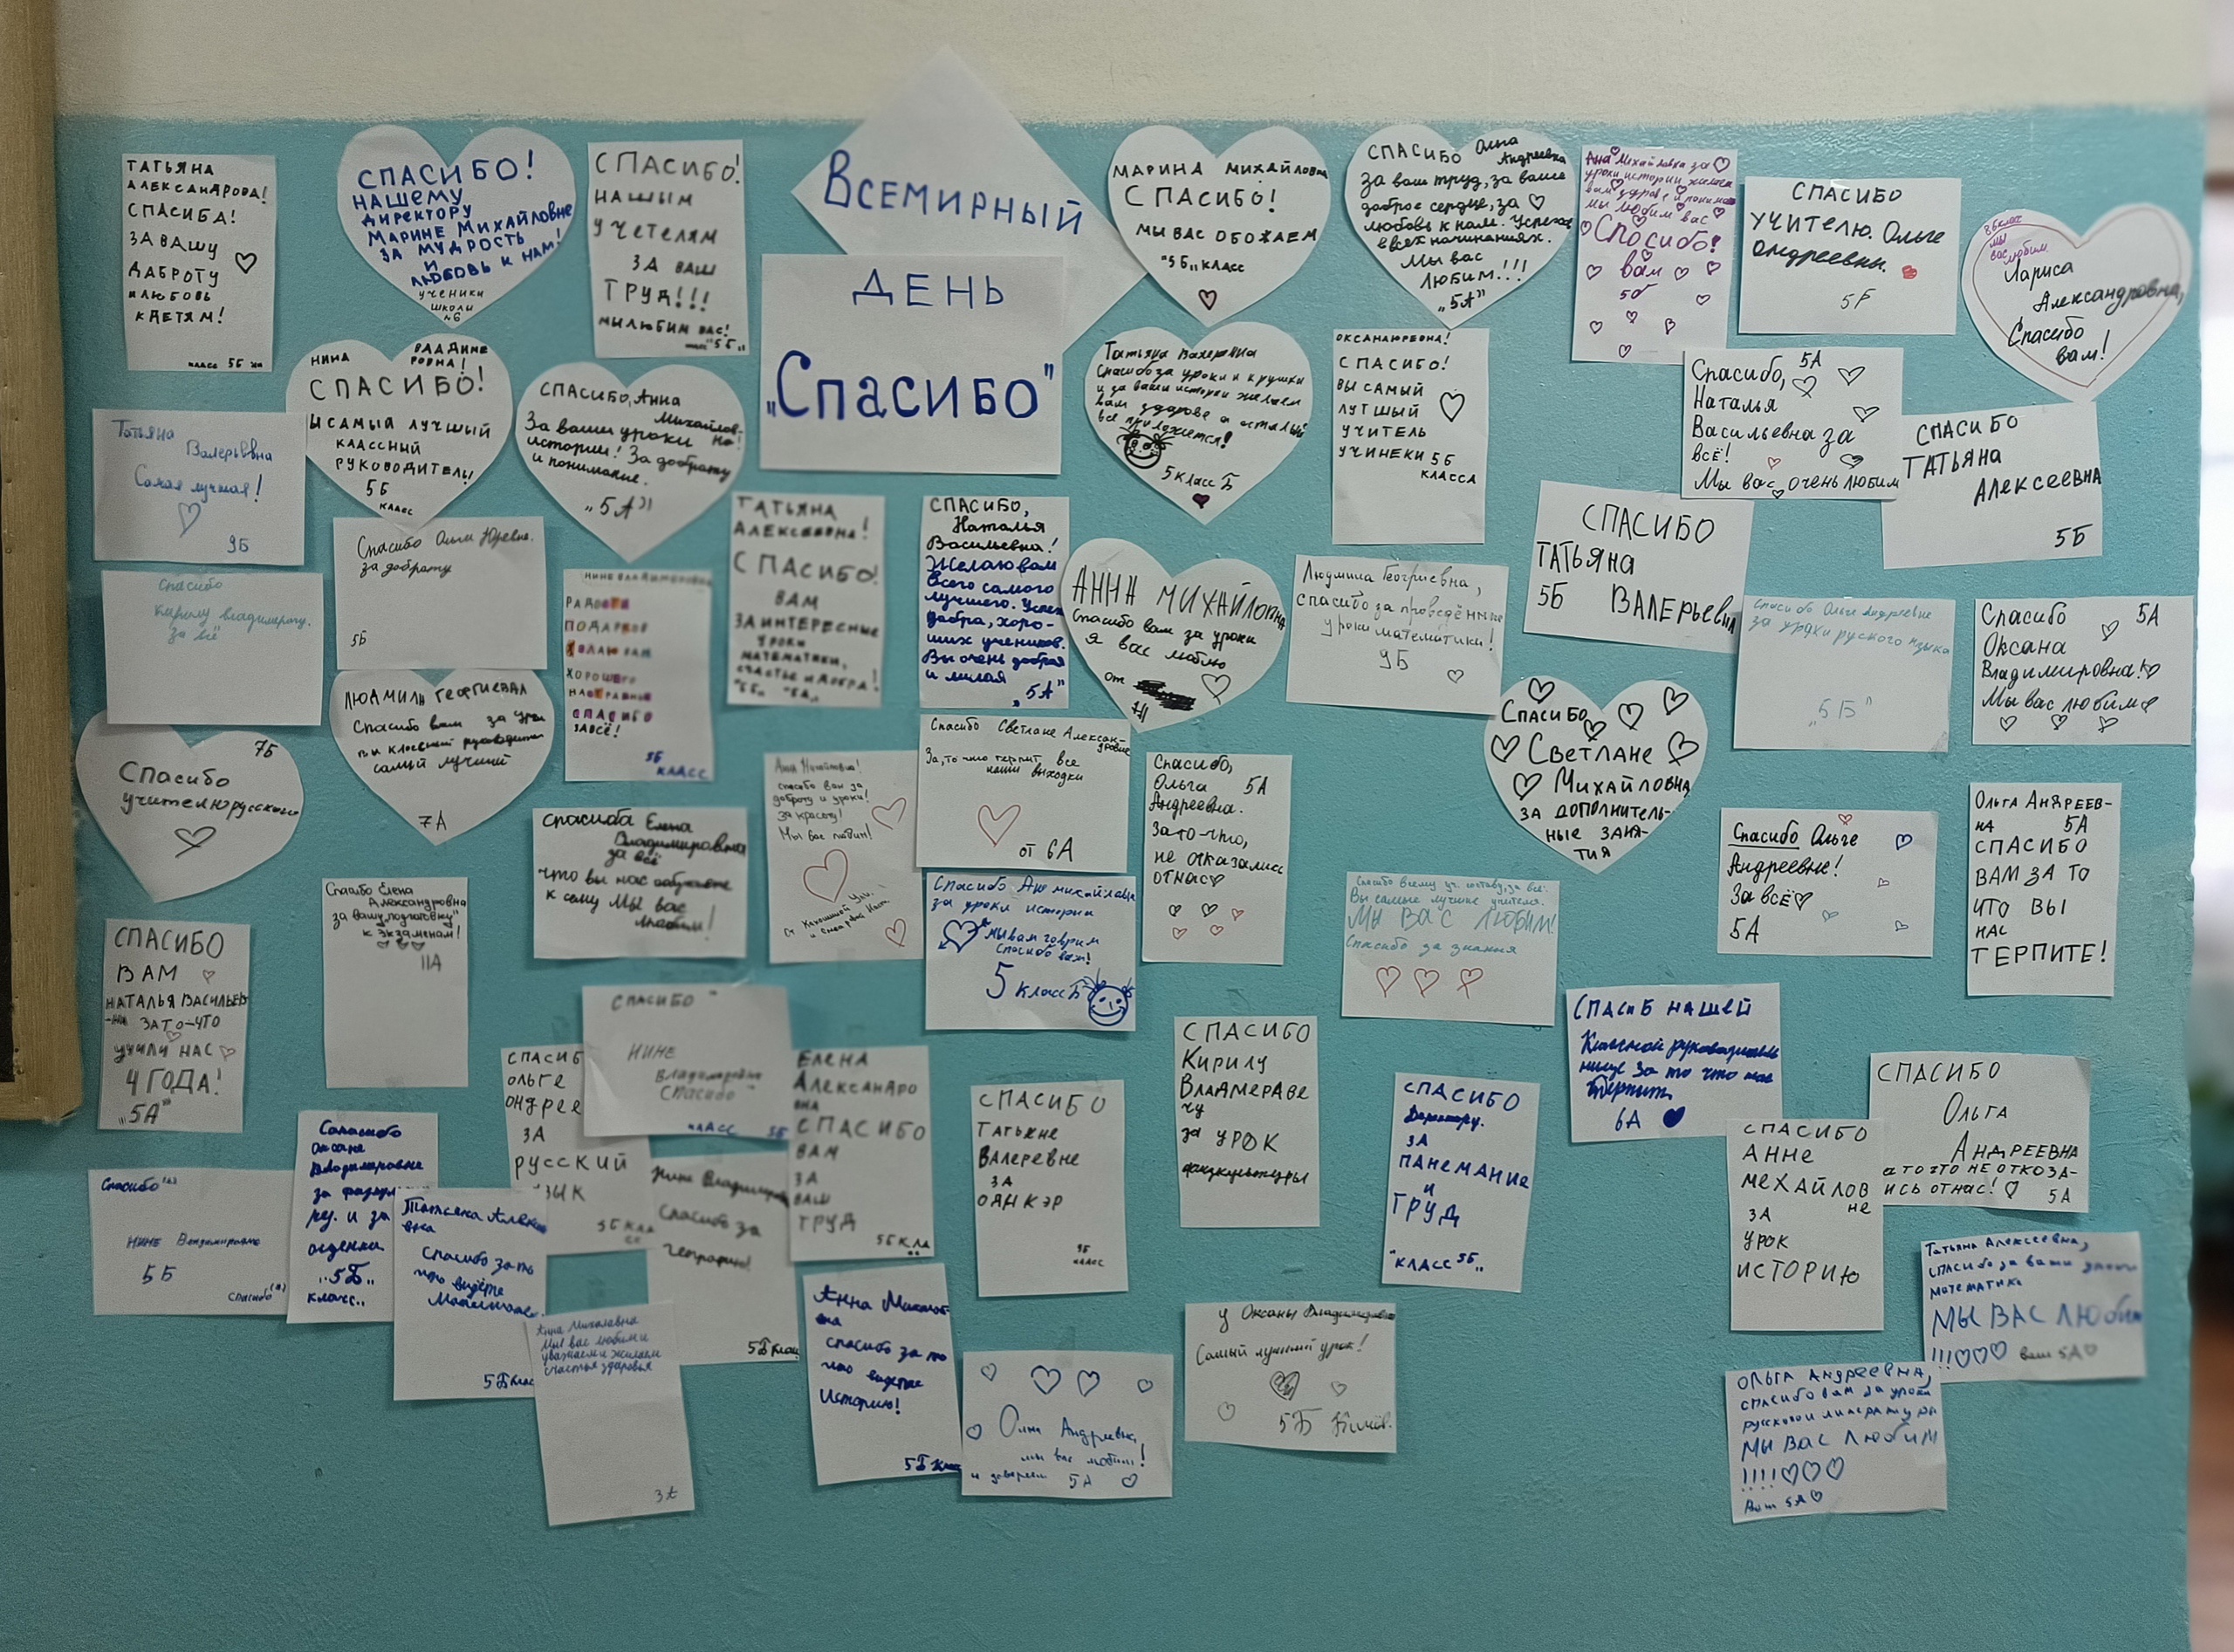 Всемирный
ДЕНЬ
„Спасибо"
ТАТЬЯНА
АЛЕКСАНДРОВА!
СПАСИБА!
ЗА ВАШУ
ДАБРОТУ
И ЛЮБОВЬ
К ДЕТЯМ!
КЛАСС 5Б
СПАСИБО!
НАШЕМУ
ДИРЕКТОРУ
МАРИНЕ МИХАЙЛОВНЕ
ЗА МУДРОСТЬ
И
ЛЮБОВЬ К НАМ!
УЧЕНИКИ
ШКОЛЫ
№6
СПАСИБО!
НАШЫМ
УЧЕТЕЛЯМ
ЗА ВАШ
ТРУД!!!
МЫ ЛЮБИМ ВАС!
"5Б„
МАРИНА МИХАЙЛОВНА
СПАСИБО!
МЫ ВАС ОБОЖАЕМ
"5Б„ КЛАСС
СПАСИБО Ольга
Андреевна
за ваш труд, за ваше
доброе сердце, за
любовь к нам. Успехов
в всех начинаниях.
Мы вас
Любим!!!
„5А"
Михайловна за
уроки истории желаем
мы любим вас
Спосибо!
вам
5б
СПАСИБО
УЧИТЕЛЮ. Ольге
Андреевны.
5Б
мы
вас любим
Лариса
Александровна,
Спасибо
вам!
НИНА ВЛАДИМЕ
РОВНА!
СПАСИБО!
Ы САМЫЙ ЛУЧШЫЙ
КЛАССНЫЙ
РУКОВОДИТЕЛЬ!
5Б
КЛАСС
СПАСИБО, Анна
Михайлов-
За ваши уроки по
истории! За доброту
и понимание.
„5А"
Татьяна Валерьевна
Спасибо за уроки и кружки
и за ваши истории желаем
вам здоровя а остальное
все приложется!
5 класс Б
ОКСАНА ЮРЕВНА!
СПАСИБО!
ВЫ САМЫЙ
ЛУТШЫЙ
УЧИТЕЛЬ
УЧИНЕКИ 5Б
КЛАССА
Спасибо, 5А
Наталья
Васильевна за
всё!
Мы вас очень любим
СПАСИБО
ТАТЬЯНА
АЛЕКСЕЕВНА
5Б
Татьяна
Валерьевна
Самая лучшая!
9Б
Спасибо Ольги Юревне.
за доброту
5Б
ТАТЬЯНА
АЛЕКСЕЕВНА!
СПАСИБО!
ВАМ
ЗА ИНТЕРЕСНЫЕ
УРОКИ
МАТЕМАТИКИ,
СЧАСТЬЕ И ДОБРА!
СПАСИБО,
Наталья
Васильевна!
Желаю вам
всего самого
лучшего. Успех
добра, хоро-
ших учеников.
Вы очень добрая
и милая
„5А"
АННА МИХАЙЛОВНА
Спасибо вам за уроки
Я вас люблю
от
Людмила Георгиевна,
спасибо за проведённые
уроки математики!
9Б
СПАСИБО
ТАТЬЯНА
5Б ВАЛЕРЬЕВНА
Спасибо Ольге Андреевне
за уроки руского языка
„5Б"
Спасибо 5А
Оксана
Владимировна!
Мы вас любим
Спасибо
Кирилу владимирову.
за всё
РАДОСТИ
ПОДАРКОВ
ЖЕЛАЮ ВАМ
ХОРОШЕГО
НАСТРАЕНИЕ
СПАСИБО
ЗА ВСЁ!
5Б
КЛАСС
7Б
Спасибо
учителю русского
ЛЮДМИЛА ГЕОРГИЕВНА
Спасибо вам за уроки
самый лучший
7А
Спасибо Светлане Алексан-
дровне
За, то что терпит все
наши выходки
от 6А
Спасибо,
Ольга 5А
Андреевна.
За то-что,
не отказались
от нас
СПАСИБО
СВЕТЛАНЕ
МИХАЙЛОВНА
ЗА ДОПОЛНИТЕЛЬ-
НЫЕ ЗАНЯ-
ТИЯ
спасибо вам за
доброту и уроки!
За красоту!
Мы вас любим!
Спасиба Елена
Владимировна
за всё
что вы нас
к сему Мы вас
любим!
Спасибо Ане михайловне
за уроки истории
мы вам говрим
Спасибо вам!
5 класс Б
Спасибо всему уч. составу, за всё.
Вы самые лучшие учителя.
Мы ВАС ЛЮБИМ!
Спасибо за знания
Спасибо Ольге
Андреевне!
За всё
5А
ОЛЬГА АНДРЕЕВ-
НА 5А
СПАСИБО
ВАМ ЗА ТО
ЧТО ВЫ
НАС
ТЕРПИТЕ!
Спасибо Елена
Александровна
за вашу „подготовку"
к экзаменам!
11А
СПАСИБО
ВАМ
НАТАЛЬЯ ВАСИЛЬЕВ-
-НА ЗА ТО-ЧТО
УЧИЛИ НАС
4 ГОДА!
„5А"
СПАСИБО
НИНЕ
Владимировне
Спасибо
КЛАСС 5Б
СПАСИБ
ОЛЬГЕ
ОНДРЕЕ
ЗА
РУССКИЙ
ЗЫК
5Б КЛА
СС
ЕЛЕНА
АЛЕКСАНДРО
ВНА
СПАСИБО
ВАМ
ЗА
ВАШ
ТРУД
5Б КЛА
СС
СПАСИБО
ТАТЬЯНЕ
ВАЛЕРЕВНЕ
ЗА
ОДНКЭР
5Б
КЛАСС
СПАСИБО
КИРИЛУ
ВЛАДМЕРАВЕ
ЧУ
за УРОК
физкультуры
СПАСИБО
Деректору.
ЗА
ПАНЕМАНИЕ
и
ТРУД
"КЛАСС 5Б„
СПАСИБ НАШЕЙ
Класной руководитель
нице За то что нас
Терпит
6А
СПАСИБО
ОЛЬГА
АНДРЕЕВНА
А ТО ЧТО НЕ ОТКОЗА-
ИСЬ ОТ НАС! 5А
СПАСИБО
АННЕ
МЕХАЙЛОВ
НЕ
ЗА
УРОК
ИСТОРИЮ
Спасибо
НИНЕ Владимировне
5Б
Спасибо
Оксане
Владимировне
за
ру. и за
оценки
„5Б„
класс..
Татьяна Алексе
вна
Спасибо за то
что ведёте
5Б Клас
Нине Владимировне
Спасибо за
географию!
5Б Клас
Анна Михалавна
Мы вас любим и
уважаем и жилаем
счастья здоровья
3А
Анна Михайло
вна
спасибо за то
что ведёте
Историю!
5Б Клас
Андреевна,
мы вас любим!
5А
У Оксаны Владимировны
Самый лучший урок!
5Б
Татьяна Алексеевна,
спасибо за ваши уроки
математики
МЫ ВАС ЛЮбим
!!! ваш 5А
ОЛЬГА АНДРЕЕВНА,
спасибо вам за уроки
русской литературы
МЫ ВАС ЛЮБИМ
!!!!
5А